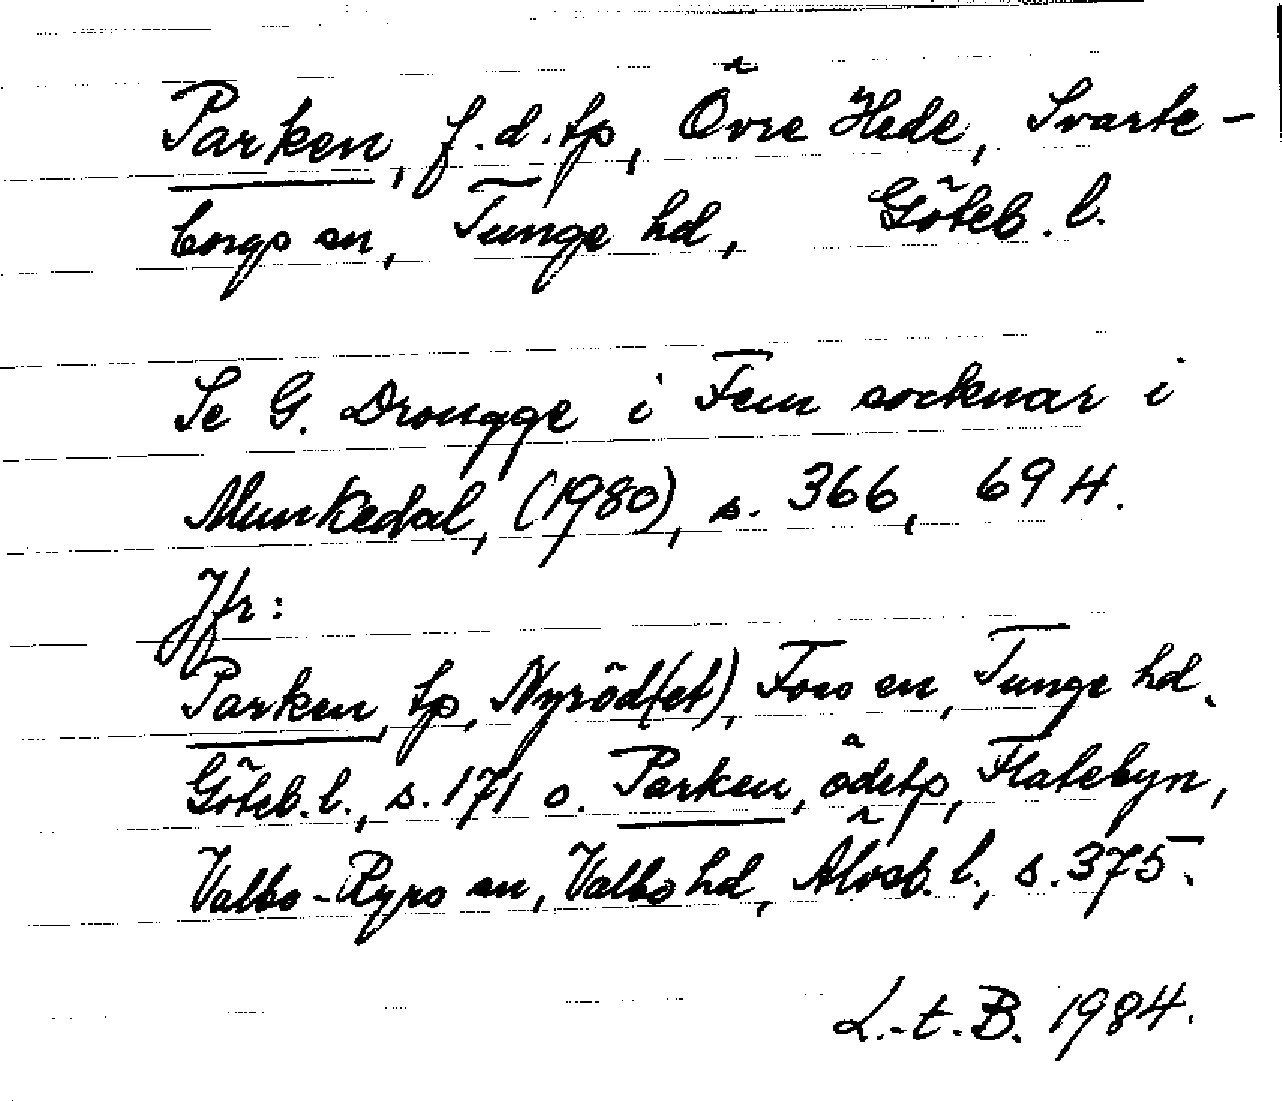 Parken, f.d.tp, Övre Hede, Svarte-
borgs sn, Tunge hd, Göteb.l.
Se G. Drougge i Fem socknar i
Munkedal, (1980), s. 366, 69 H.
Jfr:
Parken, tp, Nyröd(et), Foss sn, Tunge hd,
Göteb.l., s.171 o. Parken, ödetp, Flatebyn,
Valbo-Ryrs sn, Valbo hd, Älvsb.l., s.375.
L.-t.B. 1984.